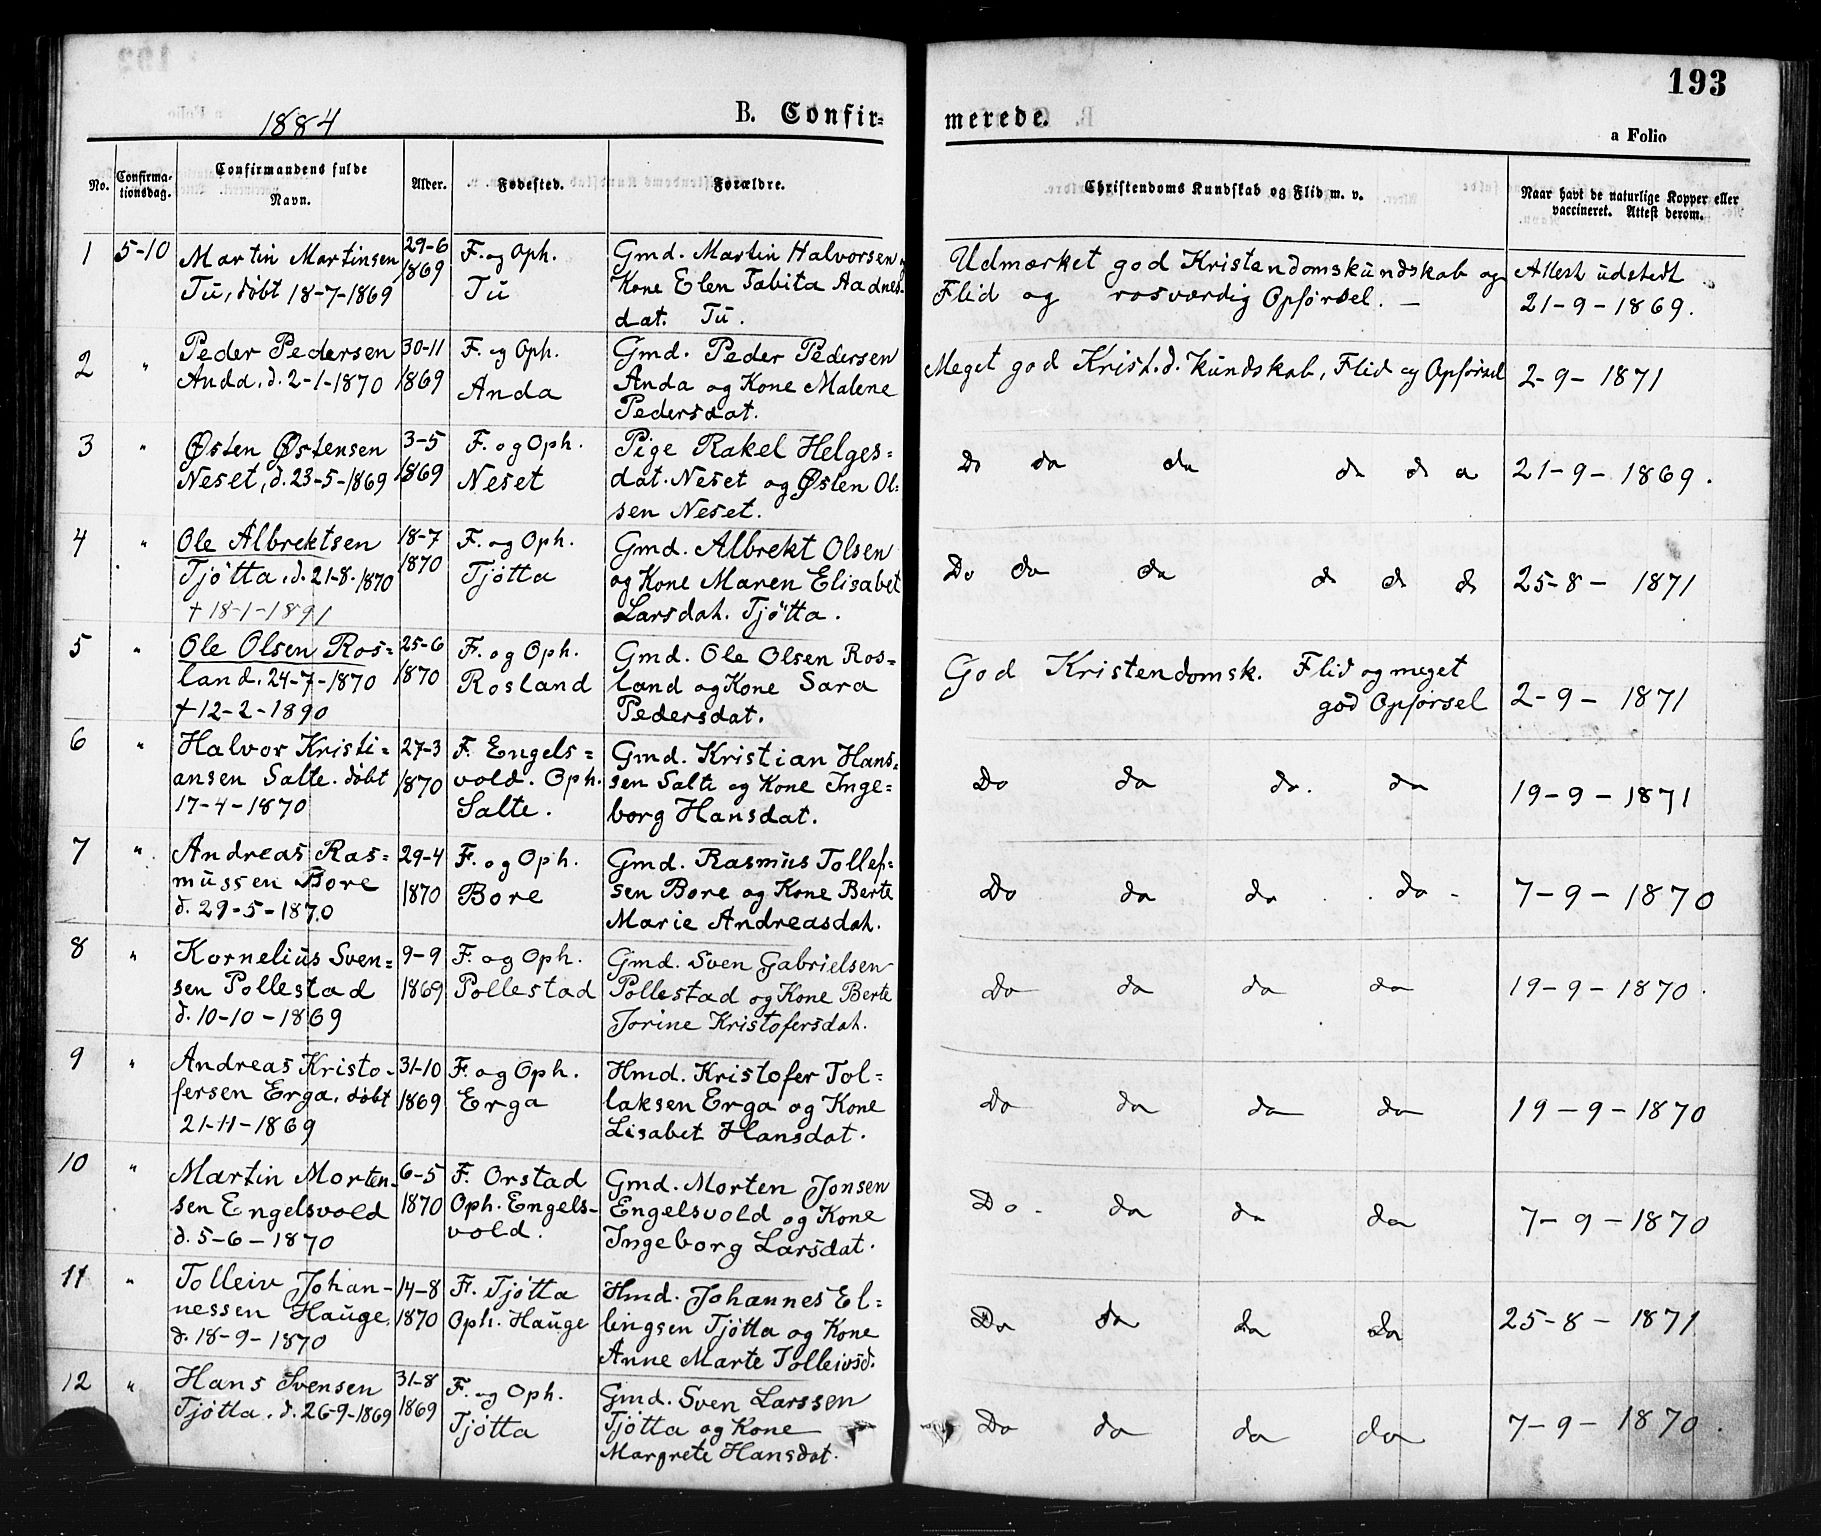 193
1884
B. Confir-
merede.
a Folio
No.
Confirma-
tionsdag.
Confirmandens fulde
Navn.
Alder.
Fødested.
Forældre.
Christendoms Kundskab og Flid m. v.
Naar havt de naturlige Kopper eller
vaccineret. Attest derom.
1 5-10
Martin Martinsen
Tu, døbt 18-7-1869
29-6
1869
F. og Oph.
Tu
Gmd. Martin Halvorsen og
Kone Elen Tabita Aadnes-
dat. Tu.
Udmærket god Kristendomskundskab og
Flid og rosværdig Opførsel. —
Attest udstedt
21-9-1869.
2 "
Peder Pedersen
Anda. d. 2-1-1870
30-11
1869
F. og Oph.
Anda
Gmd. Peder Pedersen
Anda og Kone Malene
Pedersdat.
Meget god Krist.d. kundskab, Flid og Opførsel
2-9-1871
3 "
Østen Østensen
Neset, d. 23-5-1869
3-5
1869
F. og Oph.
Neset
Pige Rakel Helges=
dat. Neset og Østen Ol=
sen Neset.
Do do do do do
21-9-1869.
4 "
Ole Albrektsen
Tjøtta. d. 21-8-1870
+ 18-1-1891
18-7
1870
F. og Oph.
Tjøtta
Gmd. Albrekt Olsen
og Kone Maren Elisabet
Larsdat. Tjøtta.
Do do do do do do
25-8-1871
5 "
Ole Olsen Ros=
land. 24-7-1870
+ 12-2-1890
25-6
1870
F. og Oph.
Rosland
Gmd. Ole Olsen Ros=
land og Kone Sara
Pedersdat.
God Kristendomsk. Flid og meget
god Opførsel
2-9-1871
6 "
Halvor Kristi=
ansen Salte. døbt
17-4-1870
27-3
1870
F. Engels=
vold. Oph.
Salte.
Gmd. Kristian Hans=
sen Salte og Kone Inge=
borg Hansdat.
Do do do. do
19-9-1871
7 "
Andreas Ras=
mussen Bore
d. 29-5-1870
29-4
1870
F. og Oph.
Bore
Gmd. Rasmus Tollef=
sen Bore og Kone Berte
Marie Andreasdat.
Do do do do -
7-9-1870
8 "
Kornelius Sven=
sen Pollestad
d. 10-10-1869
9-9
1869
F. og Oph.
Pollestad
Gmd. Sven Gabrielsen
Pollestad og Kone Berte
Jorine Kristofersdat.
Do do do do
19-9-1870.
9 "
Andreas Kristo-
fersen Erga. døbt
21-11-1869
31-10
1869
F. og Oph.
Erga
Hmd. Kristofer Tol=
laksen Erga og Kone
Lisabet Hansdat.
Do do do do
19-9-1870
10 "
Martin Morten-
sen Engelsvold
d. 5-6-1870
6-5
1870
F. Orstad
Oph. Engels-
vold.
Gmd. Morten Jonsen
Engelsvold og Kone
Ingeborg Larsdat.
Do - do do do
7-9-1870
11 "
Tolleiv Johan-
nessen Hauge.
d. 18-9-1870
14-8
1870
F. Tjøtta
Oph. Hauge
Hmd. Johannes El=
lingsen Tjøtta og Kone
Anne Marte Tolleivsd.
Do do do do
25-8-1871
12 "
Hans Svensen
Tjøtta. d. 26-9-1869
31-8
1869
F. og Oph.
Tjøtta
Gmd. Sven Larssen
Tjøtta og Kone
Margrete Hansdat.
Do do do do
7-9-1870.